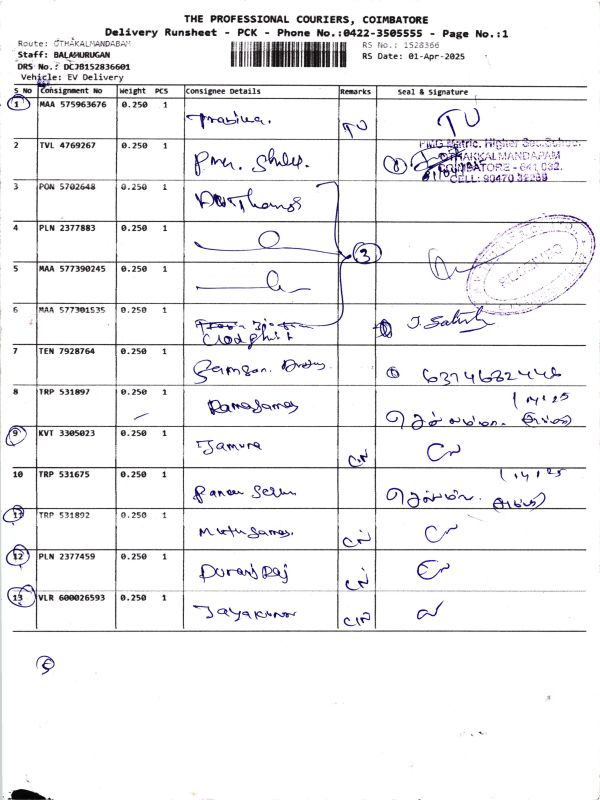 THE PROFESSIONAL COURIERS, COIMBATORE
Delivery Runsheet - PCK - Phone No.:0422-3505555 - Page No.:1
Route: OTHAKALMANDABAM
RS No.: 1528366
Staff: BALAMURUGAN
RS Date: 01-Apr-2025
DRS No.: DCJB152836601
Vehicle: EV Delivery
S No Consignment No Weight PCS Consignee Details Remarks Seal & Signature
1 MAA 575963676 0.250 1 TU TU
2 TVL 4769267 0.250 1
PMG Matric. Higher Sec. School
OTHAKKALMANDAPAM
COIMBATORE - 641 032.
CELL: 90470 32289
3 PON 5702648 0.250 1
4 PLN 2377883 0.250 1 3
5 MAA 577390245 0.250 1
6 MAA 577301535 0.250 1
7 TEN 7928764 0.250 1 6374682446
8 TRP 531897 0.250 1 Ramasamy 1/4/25
9 KVT 3305023 0.250 1 Jamuna CN CN
10 TRP 531675 0.250 1 1/4/25
11 TRP 531892 0.250 1 Muthusamy CN CN
12 PLN 2377459 0.250 1 Durairaj CN CN
13 VLR 600026593 0.250 1 Jayakumar CN CN